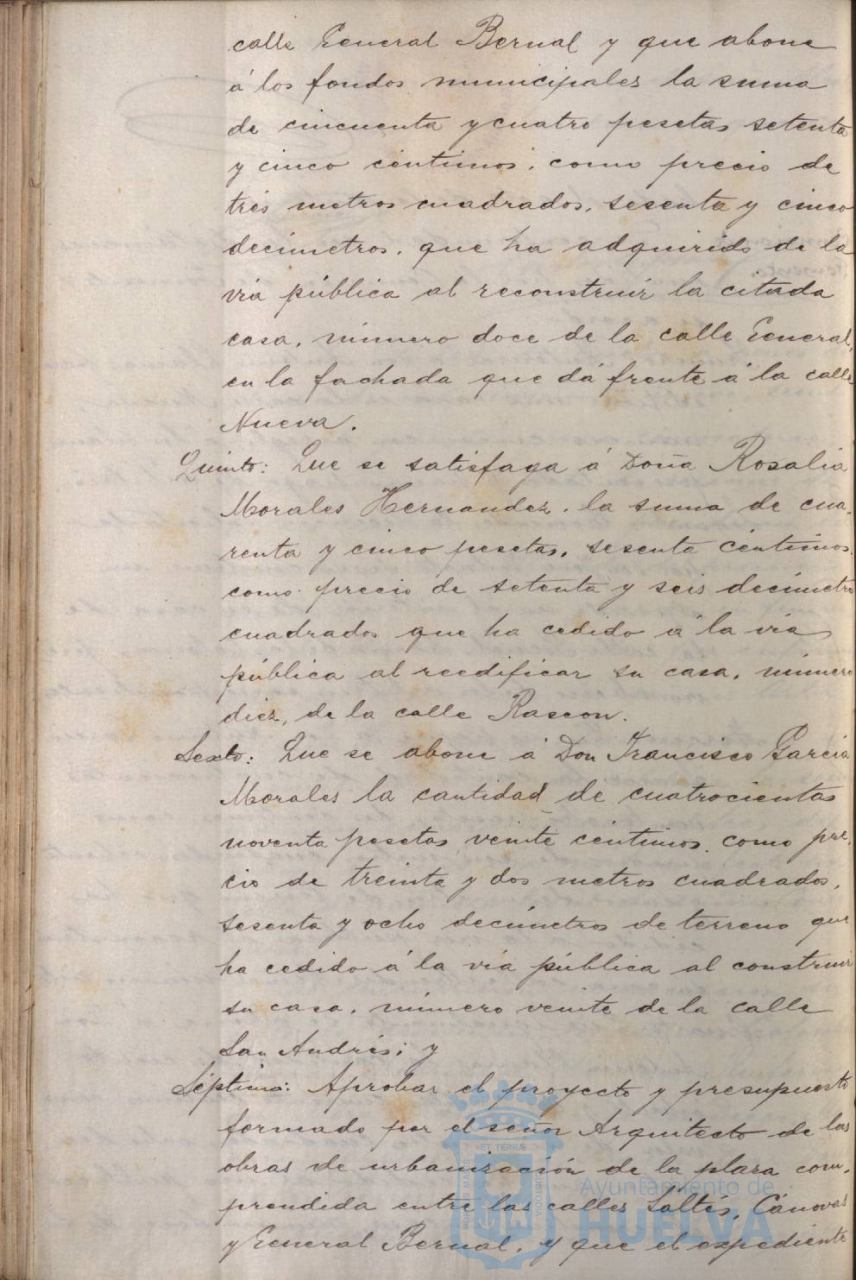 calle General Bernal y que abone
á los fondos municipales la suma
de cincuenta y cuatro pesetas setenta
y cinco céntimos, como precio de
tres metros cuadrados, sesenta y cinco
decímetros, que ha adquirido de la
vía pública al reconstruir la citada
casa, número doce de la calle General,
en la fachada que dá frente á la calle
Nueva.
Quinto: Que se satisfaga á Doña Rosalia
Morales Hernandez, la suma de cua-
renta y cinco pesetas, sesenta céntimos,
como precio de setenta y seis decímetro
cuadrados que ha cedido á la vía
pública al reedificar su casa, número
diez, de la calle Rascon.
Sexto: Que se abone á Don Francisco García
Morales la cantidad de cuatrocientas
noventa pesetas veinte céntimos, como pre-
cio de treinta y dos metros cuadrados,
sesenta y ocho decímetros de terreno que
ha cedido á la vía pública al construir
su casa, número veinte de la calle
San Andrés; y
Séptimo: Aprobar el proyecto y presupuesto
formado por el señor Arquitecto de las
obras de urbanización de la plaza com-
prendida entre las calles Saltés, Cánovas
y General Bernal, y que el expediente
Ayuntamiento de
HUELVA